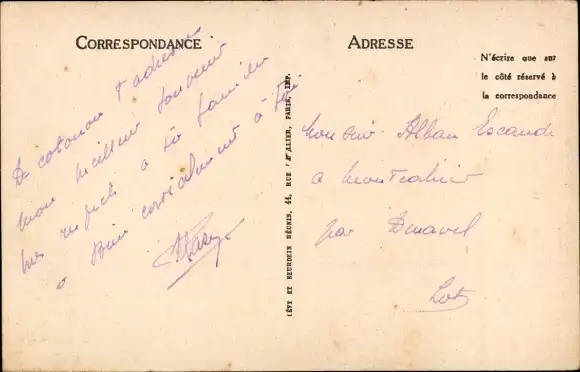 CORRESPONDANCE
De cotonou t'adresse
mon meilleur souvenir
mes respects à ta famille
Bien cordialement à toi
LÉVY ET NEURDEIN RÉUNIS, 44, RUE LETELLIER, PARIS, IMP.
ADRESSE
N'écrire que sur
le côté réservé à
la correspondance
Monsieur Alban Escande
à Montcabrier
par Duravel
Lot